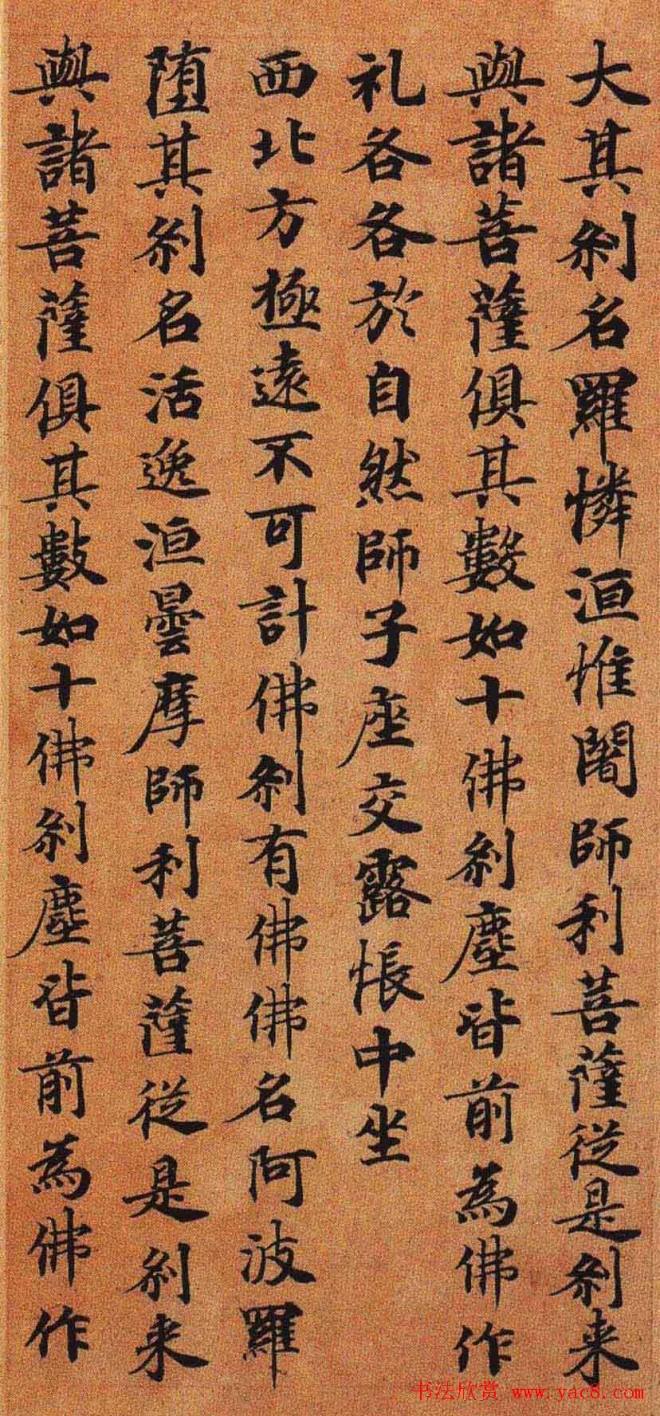 大其刹名羅憐洹惟闍師利菩薩從是刹来
與諸菩薩俱其數如十佛刹塵皆前為佛作
礼各各於自然師子座交露帳中坐
西北方極遠不可計佛刹有佛佛名阿波羅
堕其刹名活逸洹曇摩師利菩薩從是刹来
與諸菩薩俱其數如十佛刹塵皆前為佛作
书法欣赏 www.yac8.com